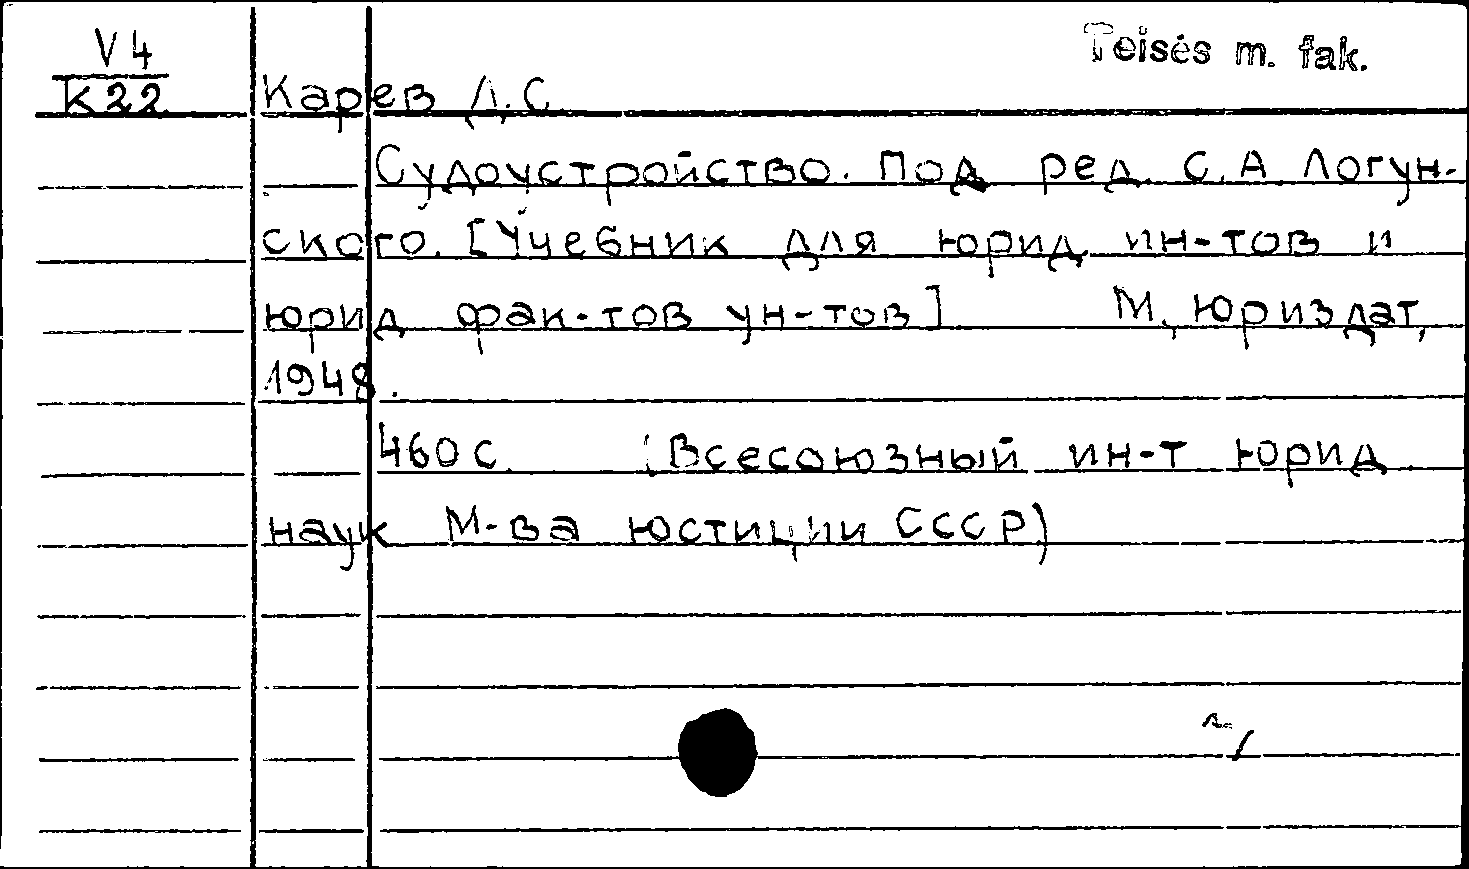 V4
Teisės m. fak.
K22
Карев Д.С.
Судоустройство. Под ред. С.А Логун-
ского. [Учебник для юрид. ин-тов и
юрид фак-тов ун-тов] М., Юриздат,
1948.
460 с. (Всесоюзный ин-т юрид.
наук М-ва юстиции СССР)